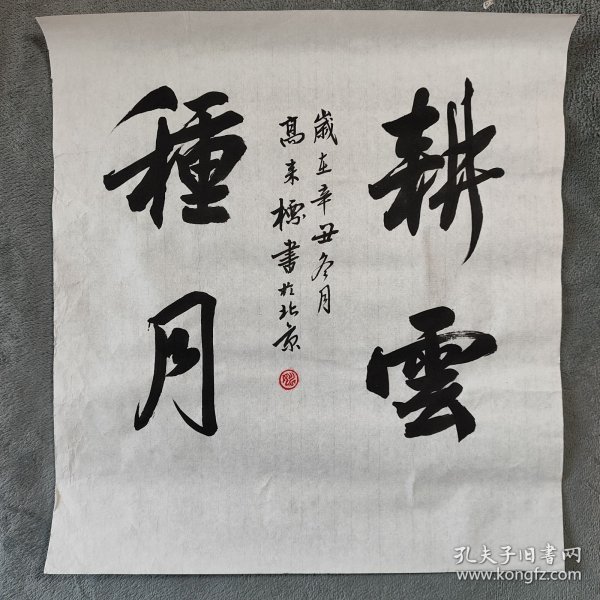 耕雲
歲在辛丑冬月
高來標書於北京
種月
孔夫子旧書网
www.kongfz.com